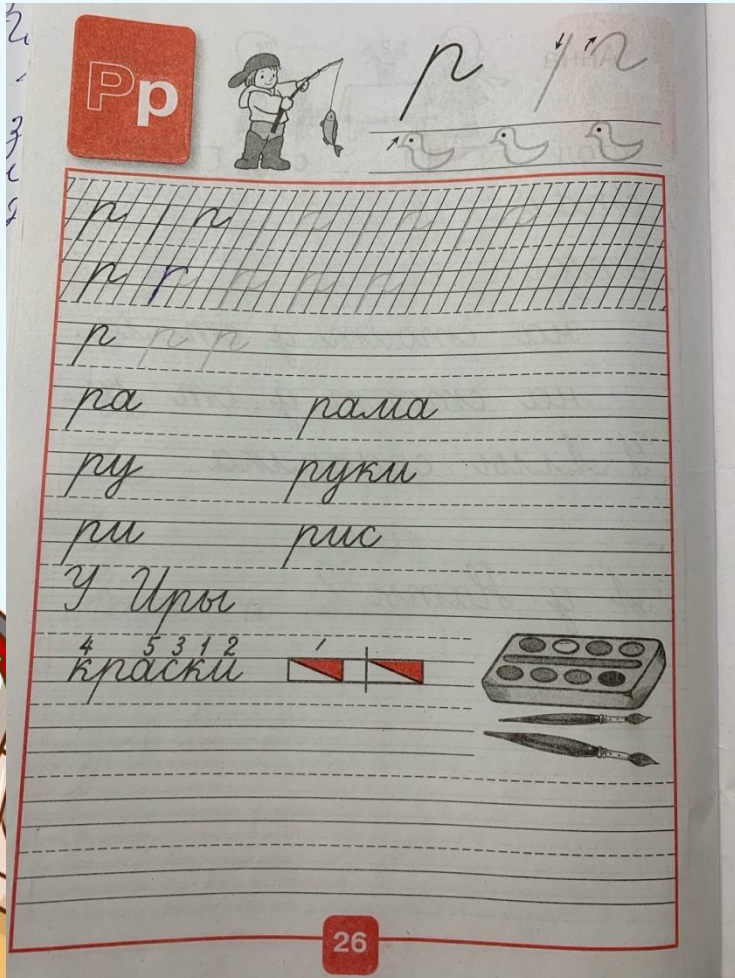 Рр
р
р р р
р р р р р
р р р
ра рама
ру руки
ри рис
У Иры
4 5 3 1 2
краски
26